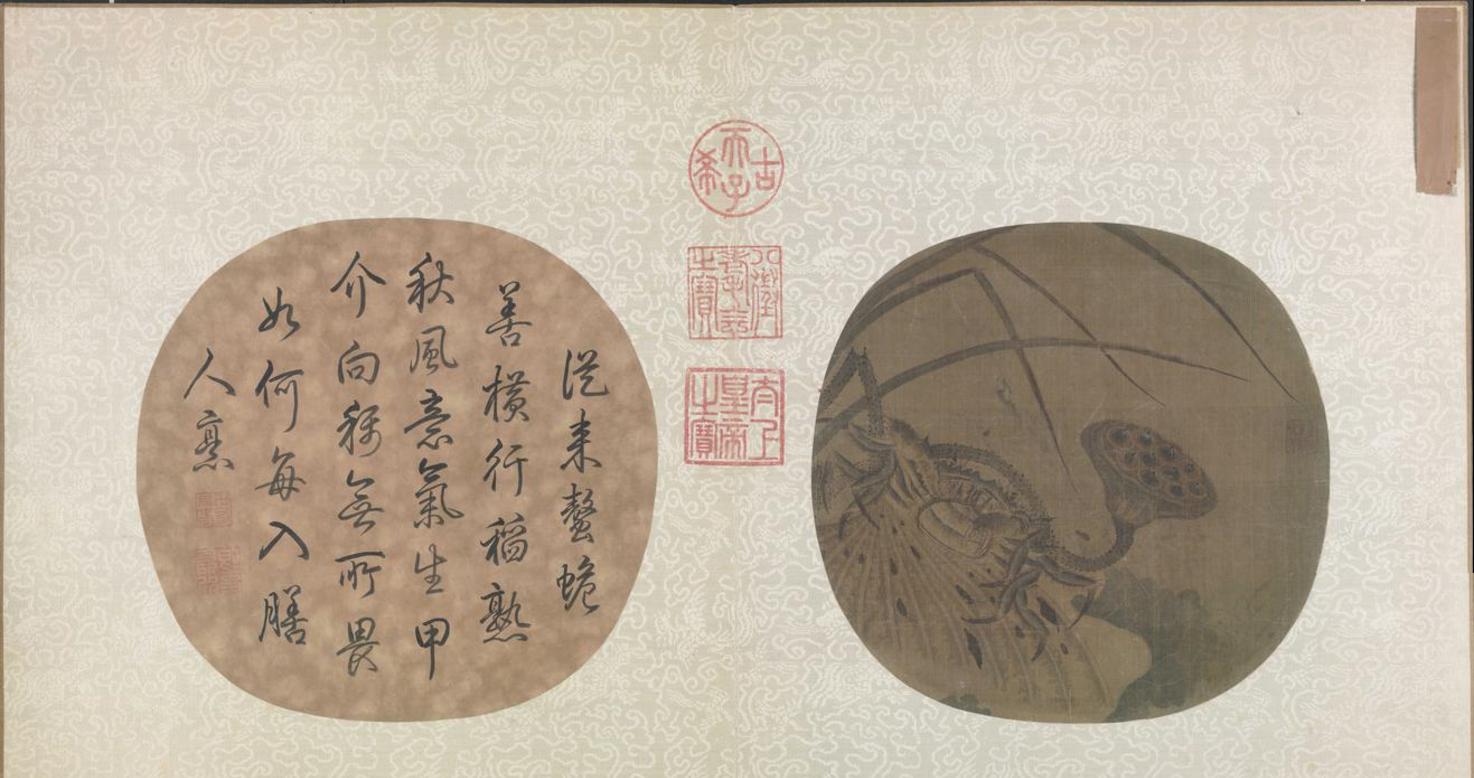 古希天子
八徵耄念之寶
太上皇帝之寶
從来螯蛫
善橫行稻熟
秋風意氣生甲
介向稱無所畏
如何每入膳
人烹